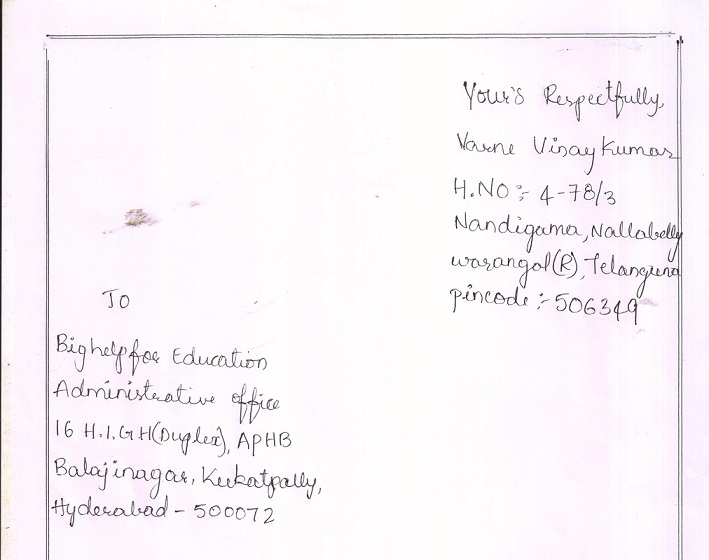 Your's Respectfully,
Varne Vinay Kumar
H.NO :- 4-78/3
Nandigama, Nallabelly
warangal(R), Telangana
pincode :- 506349
TO
Bighelp for Education
Administrative office
16 H.I.G H(Duplex), APHB
Balajinagar, Kukatpally,
Hyderabad - 500072